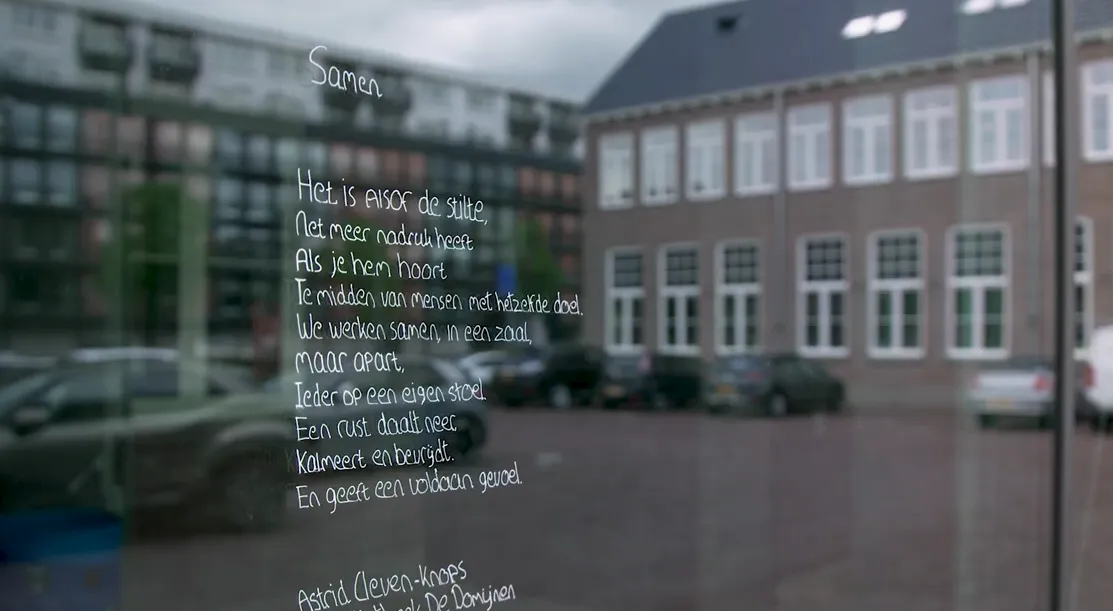 Samen
Het is alsof de stilte,
Net meer nadruk heeft
Als je hem hoort
Te midden van mensen met hetzelfde doel.
We werken samen, in een zaal,
maar apart,
Ieder op een eigen stoel.
Een rust daalt neer
Kalmeert en bevrijdt.
En geeft een voldaan gevoel.
Astrid Cleven-Knops
De Domijnen